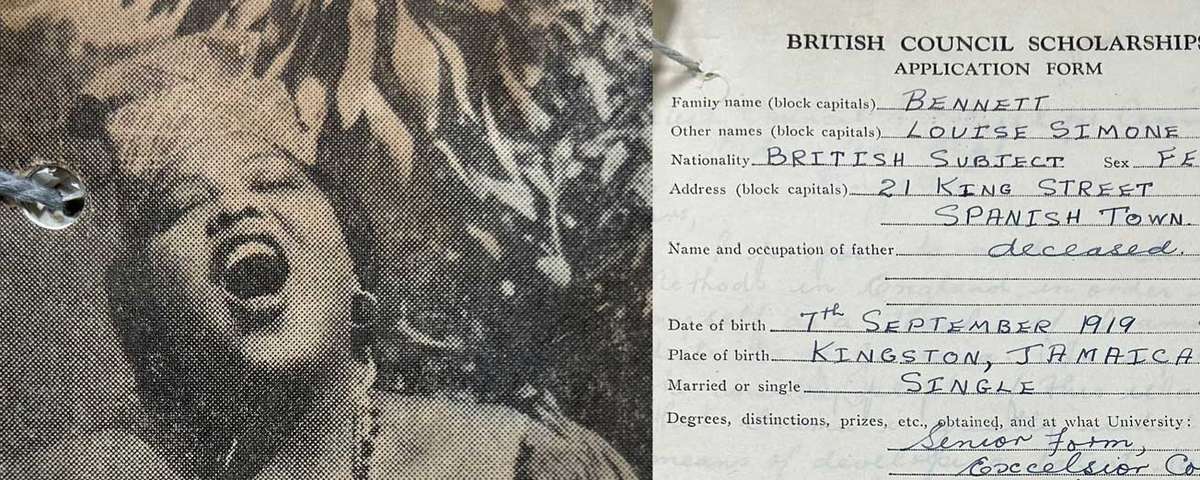 BRITISH COUNCIL SCHOLARSHIPS
APPLICATION FORM
Family name (block capitals) BENNETT
Other names (block capitals) LOUISE SIMONE
Nationality BRITISH SUBJECT Sex FE
Address (block capitals) 21 KING STREET
SPANISH TOWN.
Name and occupation of father deceased.
Date of birth 7th SEPTEMBER 1919
Place of birth KINGSTON, JAMAICA
Married or single SINGLE
Degrees, distinctions, prizes, etc., obtained, and at what University:
Senior Form,
Excelsior Co